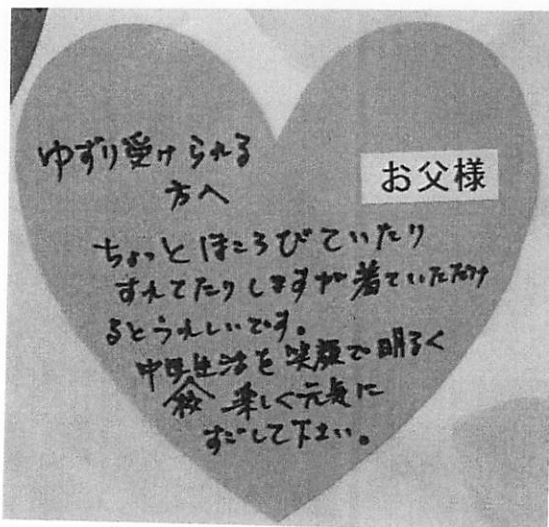 ゆずり受けられる
方へ
お父様
ちょっとほころびていたり
すれてたりしますが着ていただけ
るとうれしいです。
中学校生活を笑顔で明るく
楽しく元気に
すごして下さい。